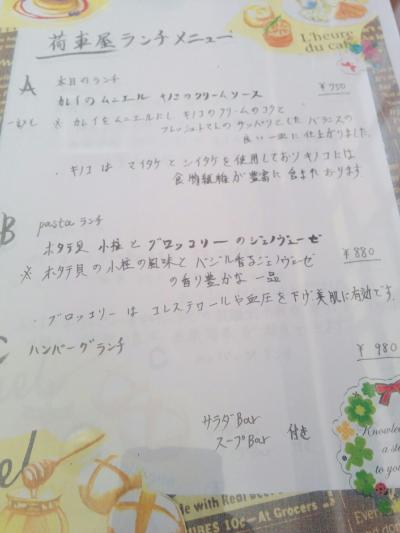 荷車屋ランチメニュー
L'heure
du café
A 本日のランチ
カレイのムニエル キノコのクリームソース ¥750
※ カレイをムニエルにし キノコのクリームのコクと
フレッシュトマトのサッパリとした バランスの
良い一皿に仕上がりました。
・キノコは マイタケとシイタケを使用しておりキノコには
食物繊維が豊富に含まれおります
B pastaランチ
ホタテ貝 小柱と ブロッコリーのジェノヴェーゼ
¥880
※ ホタテ貝の小柱の風味と バジル香るジェノヴェーゼ
の香り豊かな 一品
・ブロッコリーは コレステロールや血圧を下げ美肌に有効です。
C ハンバーグランチ ¥980
サラダBar
スープBar 付き
Know
a ste
to you
de with Real
RIBES 10c—At Grocers
Every